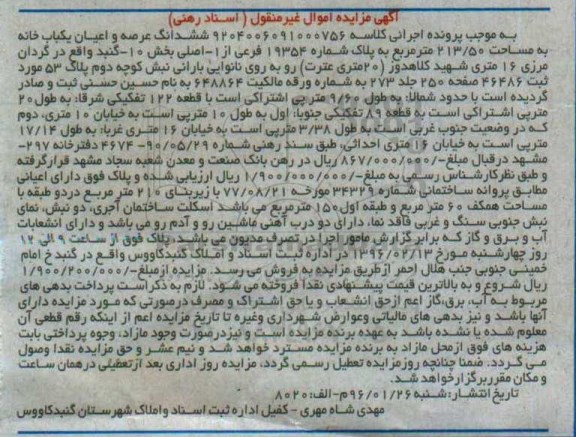 آگهی مزایده اموال غیرمنقول ( اسناد رهنی)
به موجب پرونده اجرائی کلاسه ۹۲۰۴۰۰۶۰۹۱۰۰۰۷۵۶ ششدانگ عرصه و اعیان یکباب خانه
به مساحت ۲۱۳/۵۰ مترمربع به پلاک شماره ۱۹۳۵۴ فرعی از۱-اصلی بخش ۱۰-گنبد واقع در گردان
مرزی ۱۶ متری شهید کلاهدوز (۲۰متری عترت) رو به روی نانوایی بارانی نبش کوچه دوم پلاک ۵۳ مورد
ثبت ۴۶۴۸۶ صفحه ۲۵۰ جلد ۲۷۳ به شماره ورقه مالکیت ۶۴۸۸۶۴ به نام حسین حسنی ثبت و صادر
گردیده است با حدود شمالا: به طول ۹/۶۰ متر پی اشتراکی است با قطعه ۱۲۲ تفکیکی شرقا: به طول۲۰
مترپی اشتراکی است به قطعه ۸۹ تفکیکی جنوبا: اول به طول ۱۰ مترپی است به خیابان ۱۰ متری، دوم
که در وضعیت جنوب غربی است به طول ۳/۳۸ مترپی است به خیابان ۱۶ متری غربا: به طول ۱۷/۱۴
مترپی است به خیابان ۱۶ متری احداثی، طبق سند رهنی شماره ۹۰/۰۵/۲۹- ۴۶۷۴ دفترخانه ۲۹۷-
مشهد درقبال مبلغ-/۸۶۷/۰۰۰/۰۰۰ ریال در رهن بانک صنعت و معدن شعبه سجاد مشهد قرارگرفته
و طبق نظرکارشناس رسمی به مبلغ-/۱/۹۰۰/۰۰۰/۰۰۰ ریال ارزیابی شده و پلاک فوق دارای اعیانی
مطابق پروانه ساختمانی شماره ۳۴۳۲۹ مورخه ۷۷/۰۸/۲۱ با زیربنای ۲۱۰ متر مربع دردو طبقه با
مساحت همکف ۶۰ متر مربع و طبقه اول۱۵۰ مترمربع می باشد اسکلت ساختمان آجری، دو نبش، نمای
نبش جنوبی سنگ و غربی فاقد نما، دارای دو درب آهنی ماشین رو و آدم رو می باشد و دارای انشعابات
آب و برق و گاز که برابر گزارش مامور اجرا در تصرف مدیون می باشد، پلاک فوق از ساعت ۹ الی ۱۲
روز چهارشنبه مورخ ۱۳۹۶/۰۲/۱۳ در اداره ثبت اسناد و املاک گنبدکاووس واقع در گنبد خ امام
خمینی جنوبی جنب هلال احمر ازطریق مزایده به فروش می رسد. مزایده ازمبلغ-/۱/۹۰۰/۲۰۰/۰۰۰
ریال شروع و به بالاترین قیمت پیشنهادی نقدا فروخته می شود. لازم به ذکراست پرداخت بدهی های
مربوط به آب، برق،گاز اعم ازحق انشعاب و یا حق اشتراک و مصرف درصورتی که مورد مزایده دارای
آنها باشد و نیز بدهی های مالیاتی وعوارض شهرداری وغیره تا تاریخ مزایده اعم از اینکه رقم قطعی آن
معلوم شده یا نشده باشد به عهده برنده مزایده است و نیزدرصورت وجود مازاد، وجوه پرداختی بابت
هزینه های فوق ازمحل مازاد به برنده مزایده مسترد خواهد شد و نیم عشر و حق مزایده نقدا وصول
می گردد. ضمنا چنانچه روزمزایده تعطیل رسمی گردد، مزایده روز اداری بعد ازتعطیلی درهمان ساعت
و مکان مقرر برگزار خواهد شد.
تاریخ انتشار: شنبه ۹۶/۰۱/۲۶م-الف: ۸۰۲۰
مهدی شاه مهری - کفیل اداره ثبت اسناد واملاک شهرستان گنبدکاووس